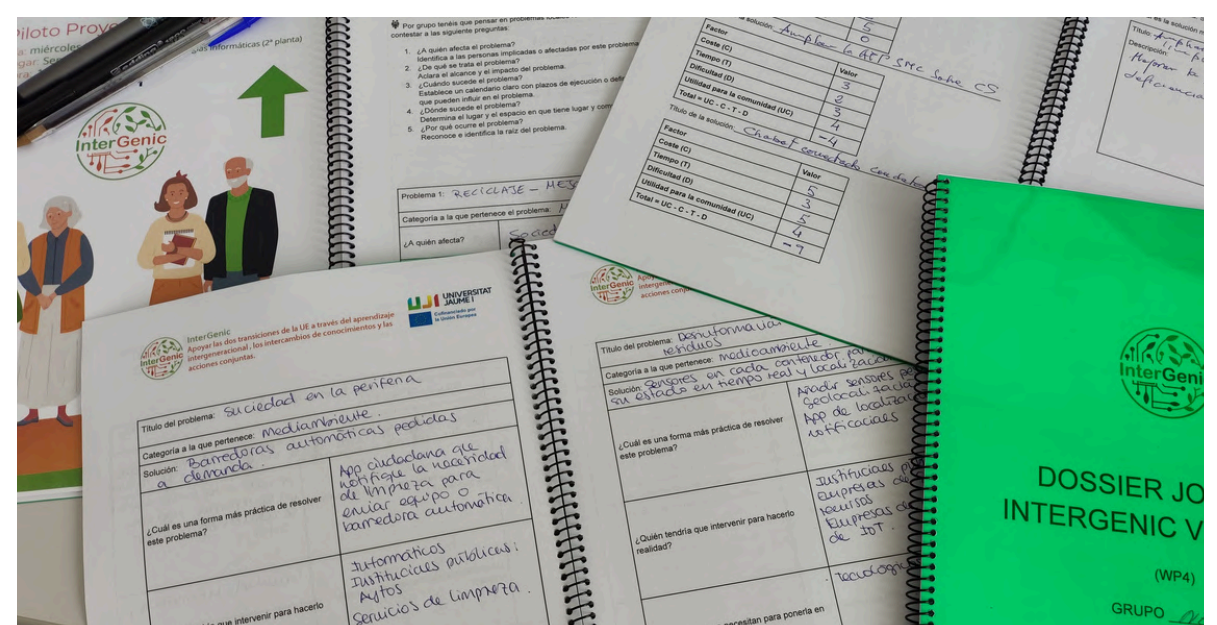 Piloto Proye
miércoles
informáticas (2ª planta)
InterGenic
Por grupo tenéis que pensar en problemas locales
contestar a las siguiente preguntas:
1. ¿A quién afecta el problema?
Identifica a las personas implicadas o afectadas por este problema
2. ¿De qué se trata el problema?
Aclara el alcance y el impacto del problema.
3. ¿Cuándo sucede el problema?
Establece un calendario claro con plazos de ejecución o
que pueden influir en el problema.
4. ¿Dónde sucede el problema?
Determina el lugar y el espacio en que tiene lugar y
5. ¿Por qué ocurre el problema?
Reconoce e identifica la raíz del problema.
Problema 1: RECICLAJE –
Categoría a la que pertenece el problema.
¿A quién afecta?
solución: Ampliar la APP SMC sobre CS
Factor Valor
Coste (C) 3
Tiempo (T) 2
Dificultad (D) 3
Utilidad para la comunidad (UC) 4
Total = UC - C - T - D -4
Título de la solución: Chabot conectado con datos
Factor Valor
Coste (C) 5
Tiempo (T) 3
Dificultad (D) 5
Utilidad para la comunidad (UC) 4
Total = UC - C - T - D -9
es la solución
Título:
Descripción:
Mejorar la
InterGenic
InterGenic
Apoyar las dos transiciones de la UE a través del aprendizaje
intergeneracional, los intercambios de conocimientos y las
acciones conjuntas.
UJI UNIVERSITAT
JAUME I
Cofinanciado por
la Unión Europea
Título del problema: suciedad en la periferia
Categoría a la que pertenece: Mediambiente.
Solución: Barredoras automáticas pedidas
a demanda.
¿Cuál es una forma más práctica de resolver
este problema?
App ciudadana que
notifique la necesidad
de limpieza para
enviar equipo o
barredora automática.
intervenir para hacerlo
Informáticos
Instituciones públicas:
Aytos
Servicios de limpieza.
InterGenic
acciones
Título del problema: Desinformación
residuos
Categoría a la que pertenece: medioambiente.
Solución: Sensores en cada contenedor, para
su estado en tiempo real y localización
¿Cuál es una forma más práctica de resolver
este problema?
Añadir sensores
geolocalización
App de
notificaciones
¿Quién tendría que intervenir para hacerlo
realidad?
Instituciones
Empresas de
recursos
Empresas de
de IoT.
necesitan para ponerla en
InterGeni
DOSSIER JO
INTERGENIC V
(WP4)
GRUPO